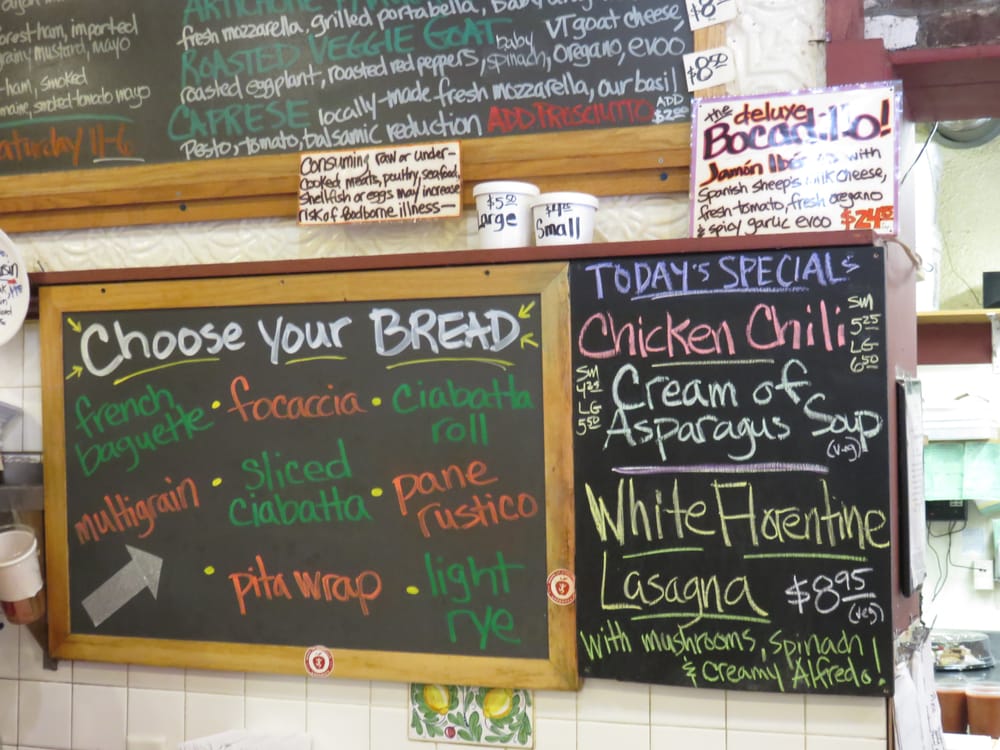 ham, imported
grainy mustard, mayo
ham, smoked
smoked-tomato mayo
Saturday 11-6
fresh mozzarella, grilled portabella, baby
ROASTED VEGGIE GOAT VT goat cheese,
roasted eggplant, roasted red peppers, baby spinach, oregano, evoo
CAPRESE locally-made fresh mozzarella, our basil
Pesto, tomato, balsamic reduction ADD PROSCIUTTO ADD $2.00
$8.50
Consuming raw or under-
cooked meats, poultry, seafood,
shellfish or eggs may increase
risk of foodborne illness—
$5.50
Large
Small
the deluxe
Bocadillo!
Jamón with
Spanish sheep's milk cheese,
fresh tomato, fresh oregano
& spicy garlic evoo
Choose your BREAD
french
baguette • focaccia • ciabatta
roll
multigrain • sliced
ciabatta • pane
rustico
• pita wrap • light
rye
TODAY'S SPECIALS
Chicken Chili
SM
5.25
LG
6.50
SM
4.25
LG
5.50
Cream of
Asparagus Soup
(veg)
White Florentine
Lasagna $8.95
(veg)
with mushrooms, spinach
& creamy Alfredo!